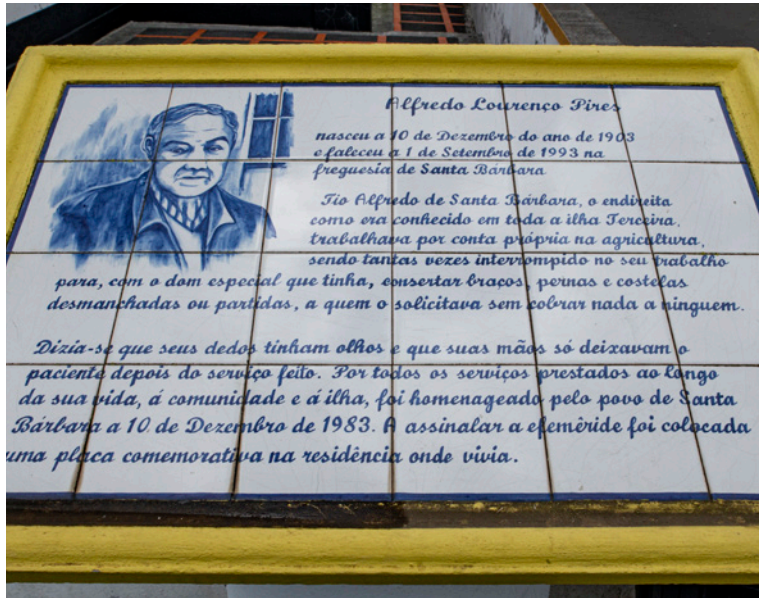 Alfredo Lourenço Pires
nasceu a 10 de Dezembro do ano de 1903
e faleceu a 1 de Setembro de 1993 na
freguesia de Santa Bárbara
Tio Alfredo de Santa Bárbara, o endireita
como era conhecido em toda a ilha Terceira,
trabalhava por conta própria na agricultura,
sendo tantas vezes interrompido no seu trabalho
para, com o dom especial que tinha, consertar braços, pernas e costelas
desmanchadas ou partidas, a quem o solicitava sem cobrar nada a ninguem.
Dizia-se que seus dedos tinham olhos e que suas mãos só deixavam o
paciente depois do serviço feito. Por todos os serviços prestados ao longo
da sua vida, á comunidade e á ilha, foi homenageado pelo povo de Santa
Bárbara a 10 de Dezembro de 1983. A assinalar a efeméride foi colocada
uma placa comemorativa na residência onde vivia.